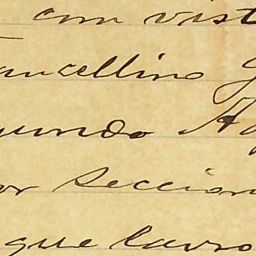 com vist
ancellino G
gundo Ag
or seccion
que lavro